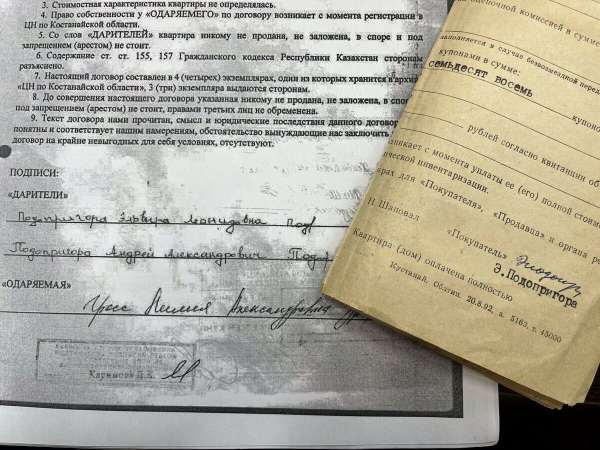 3. Стоимостная характеристика квартиры не определялась.
4. Право собственности у «ОДАРЯЕМЕГО» по договору возникает с момента регистрации в
ЦН по Костанайской области.
5. Со слов «ДАРИТЕЛЕЙ» квартира никому не продана, не заложена, в споре и под
запрещением (арестом) не стоит.
6. Содержание ст. ст. 155, 157 Гражданского кодекса Республики Казахстан сторонам
разъяснено.
7. Настоящий договор составлен в 4 (четырех) экземплярах, один из которых хранится в архи
«ЦН по Костанайской области», 3 (три) экземпляра выдаются сторонам.
8. До совершения настоящего договора указанная никому не продана, не заложена, в спо
под запрещением (арестом) не стоит, правами третьих лиц не обременена.
9. Текст договора нами прочитан, смысл и юридические последствия данного договор
понятны и соответствует нашим намерениям, обстоятельство вынуждающие нас заключить
договор на крайне невыгодных для себя условиях, отсутствуют.
ПОДПИСИ:
«ДАРИТЕЛИ»
Подопригора Эльвира Леонидовна
Подопригора Андрей Александрович
«ОДАРЯЕМАЯ»
Александровна
оценочной комиссией в сумме
заполняется в случае безвозмездной перед
купонами в сумме:
семьдесят восемь
купону
рублей согласно квитанции об
никает с момента уплаты ее (его) полной стоимо
ической инвентаризации.
рах для «Покупателя», «Продавца» и органа ре
Н. Шаповал
«Покупатель»
Э.Подопригора
Квартира (дом) оплачена полностью
Кустанай. Облтип. 20.8.92, з. 5163, т. 45000